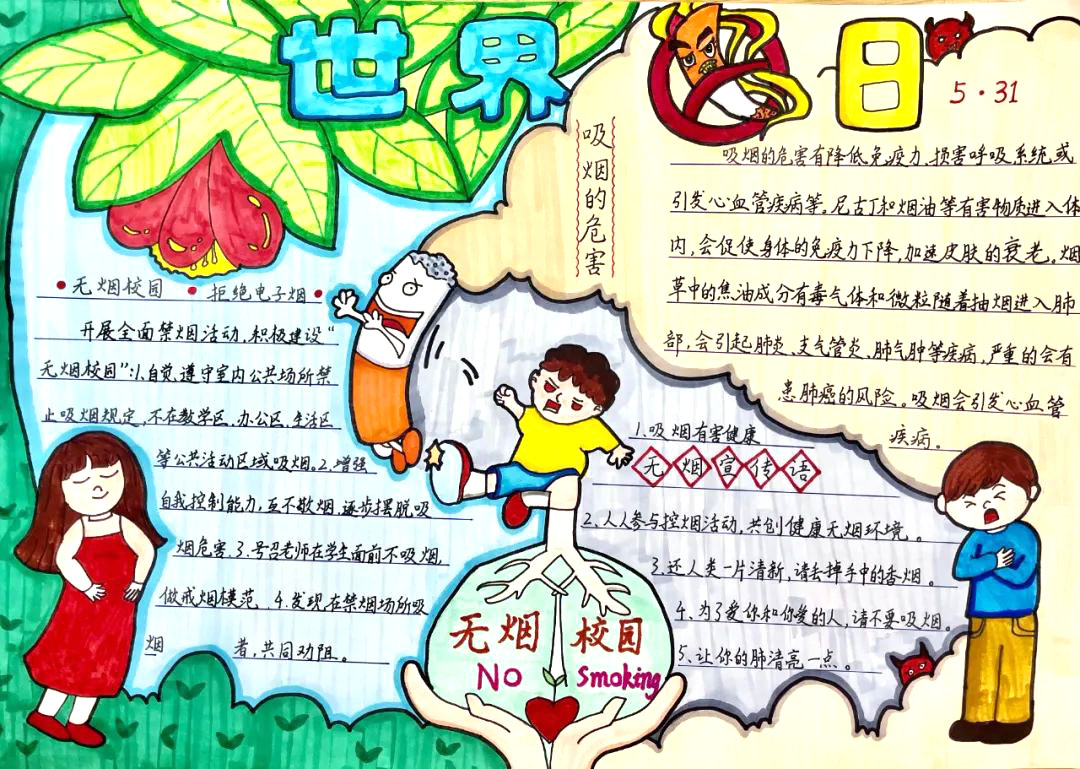 世界
日
5·31
吸烟的危害
吸烟的危害有降低免疫力,损害呼吸系统或
引发心血管疾病等。尼古丁和烟油等有害物质进入体
内,会促使身体的免疫力下降,加速皮肤的衰老。烟
草中的焦油成分有毒气体和微粒随着抽烟进入肺
部,会引起肺炎、支气管炎、肺气肿等疾病,严重的会有
患肺癌的风险。吸烟会引发心血管
疾病。
•无烟校园 •拒绝电子烟•
开展全面禁烟活动,积极建设“
无烟校园”:1.自觉遵守室内公共场所禁
止吸烟规定,不在教学区、办公区、生活区
等公共活动区域吸烟。2.增强
自我控制能力,互不敬烟,逐步摆脱吸
烟危害。3.号召老师在学生面前不吸烟,
做戒烟模范。4.发现在禁烟场所吸
烟 者,共同劝阻。
1.吸烟有害健康
无烟宣传语
2.人人参与控烟活动,共创健康无烟环境。
3.还人类一片清新,请丢掉手中的香烟。
4.为了爱你和你爱的人,请不要吸烟。
5.让你的肺清亮一点。
无烟 校园
No Smoking